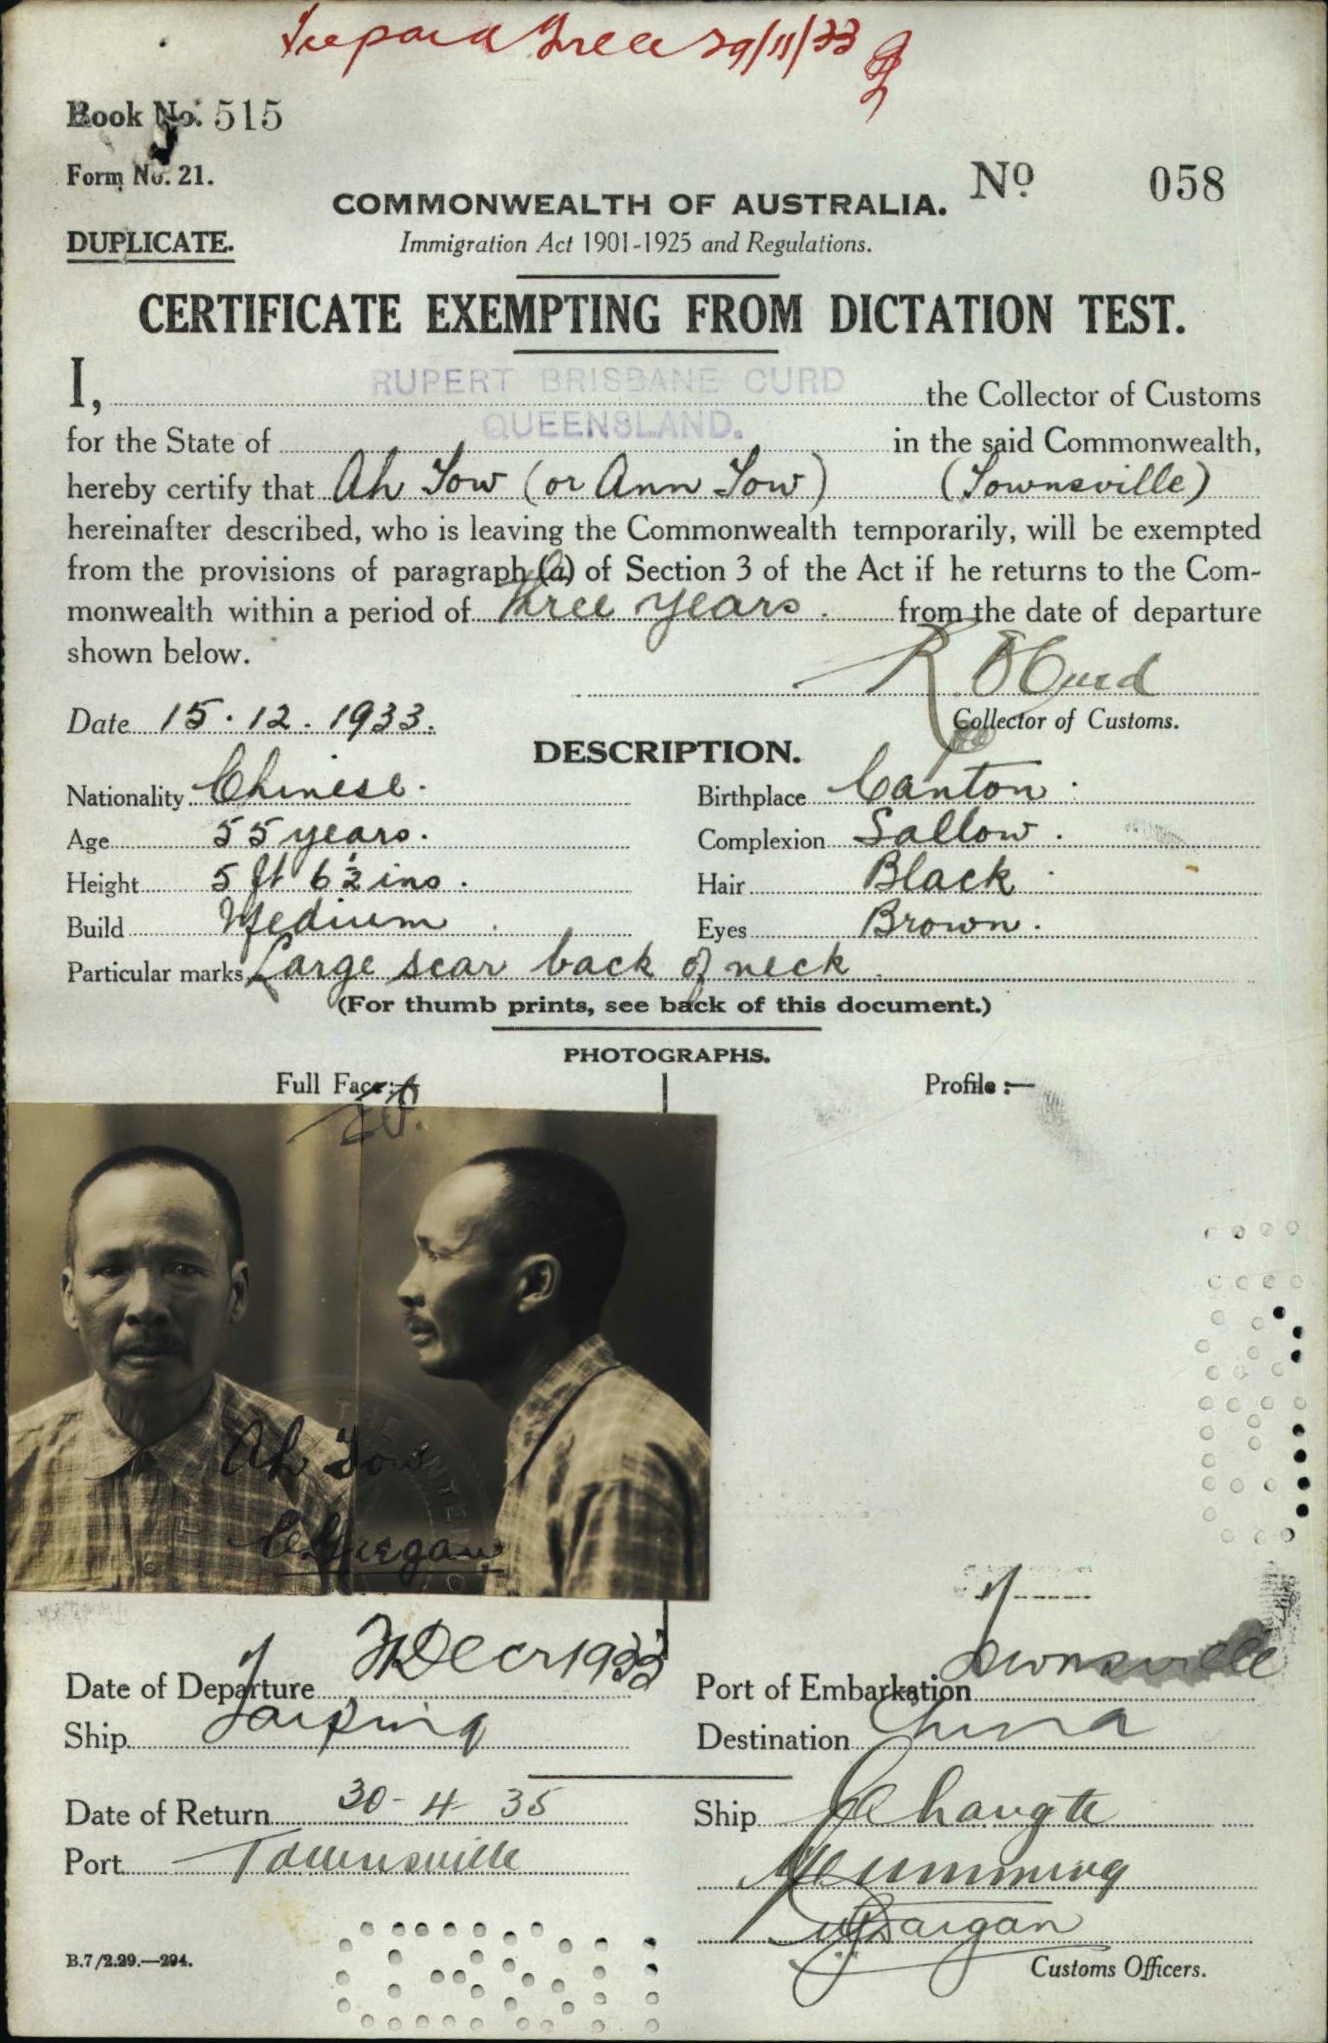 29/11/33
Book No. 515
Form No. 21.
No 058
COMMONWEALTH OF AUSTRALIA.
DUPLICATE.
Immigration Act 1901-1925 and Regulations.
CERTIFICATE EXEMPTING FROM DICTATION TEST.
I, RUPERT BRISBANE CURD the Collector of Customs
for the State of QUEENSLAND. in the said Commonwealth,
hereby certify that Ah Tow (or Ann Tow) (Townsville)
hereinafter described, who is leaving the Commonwealth temporarily, will be exempted
from the provisions of paragraph (a) of Section 3 of the Act if he returns to the Com-
monwealth within a period of three years. from the date of departure
shown below.
R B Curd
Date 15.12.1933. Collector of Customs.
DESCRIPTION.
Nationality Chinese. Birthplace Canton.
Age 55 years. Complexion Sallow.
Height 5 ft 6½ ins. Hair Black
Build Medium Eyes Brown.
Particular marks Large scar back of neck
(For thumb prints, see back of this document.)
PHOTOGRAPHS.
Full Face:— Profile:—
Ah Tow
Date of Departure Decr 1933 Port of Embarkation Townsville
Ship Taiping Destination China
Date of Return 30-4-35 Ship Changte
Port Townsville
B.7/2.29.—294. Customs Officers.